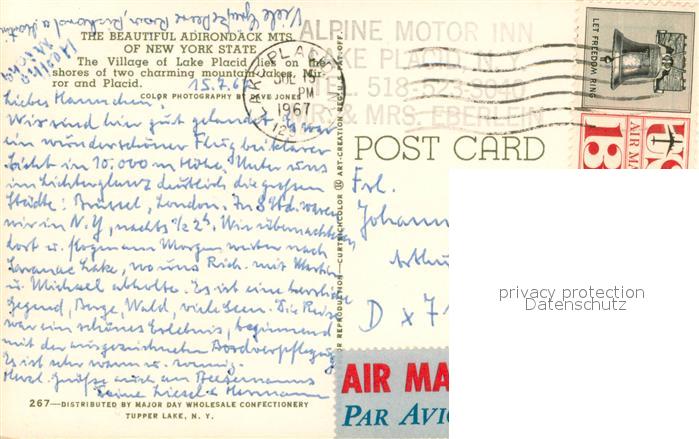 THE BEAUTIFUL ADIRONDACK MTS.
OF NEW YORK STATE
The Village of Lake Placid lies on the
shores of two charming mountain lakes, Mir
ror and Placid.
COLOR PHOTOGRAPHY BY DAVE JONES
15.7.67
Liebes Hannchen,
Wir sind hier gut gelandet. Es war
ein wunderschöner Flug bei klarer
Sicht in 10.000 m Höhe. Unter uns
im Lichterglanz deutlich die großen
Städte: Brüssel, London. In 8 Std. waren
wir in N.Y, nachts 1/2 2h. Wir übernachteten
dort u. flogen am Morgen weiter nach
Saranac Lake, wo uns Rich. mit
u. Michael abholte. Es ist eine herrliche
Gegend, Berge, Wald, viele Seen. Die Reise
war ein schönes Erlebnis, beginnend
mit der ausgezeichneten Bordverpflegung.
Es ist sehr warm u. sonnig.
Herzl. Grüße auch an
Deine Liesel u Hermann
267—DISTRIBUTED BY MAJOR DAY WHOLESALE CONFECTIONERY
TUPPER LAKE, N. Y.
COLOR REPRODUCTION — CURTEICHCOLOR ® ART-CREATION REG'D U.S. PAT. OFF.
ALPINE MOTOR INN
LAKE PLACID, N.Y.
TEL. 518-523-5040
MR. & MRS. EBERLEIN
LAKE PLACID
JUL 15
PM
1967
POST CARD
Frl.
Johann
Arthu
D x 71
AIR MA
PAR AVIO
LET FREEDOM RING
US
AIR MA
13
privacy protection
Datenschutz